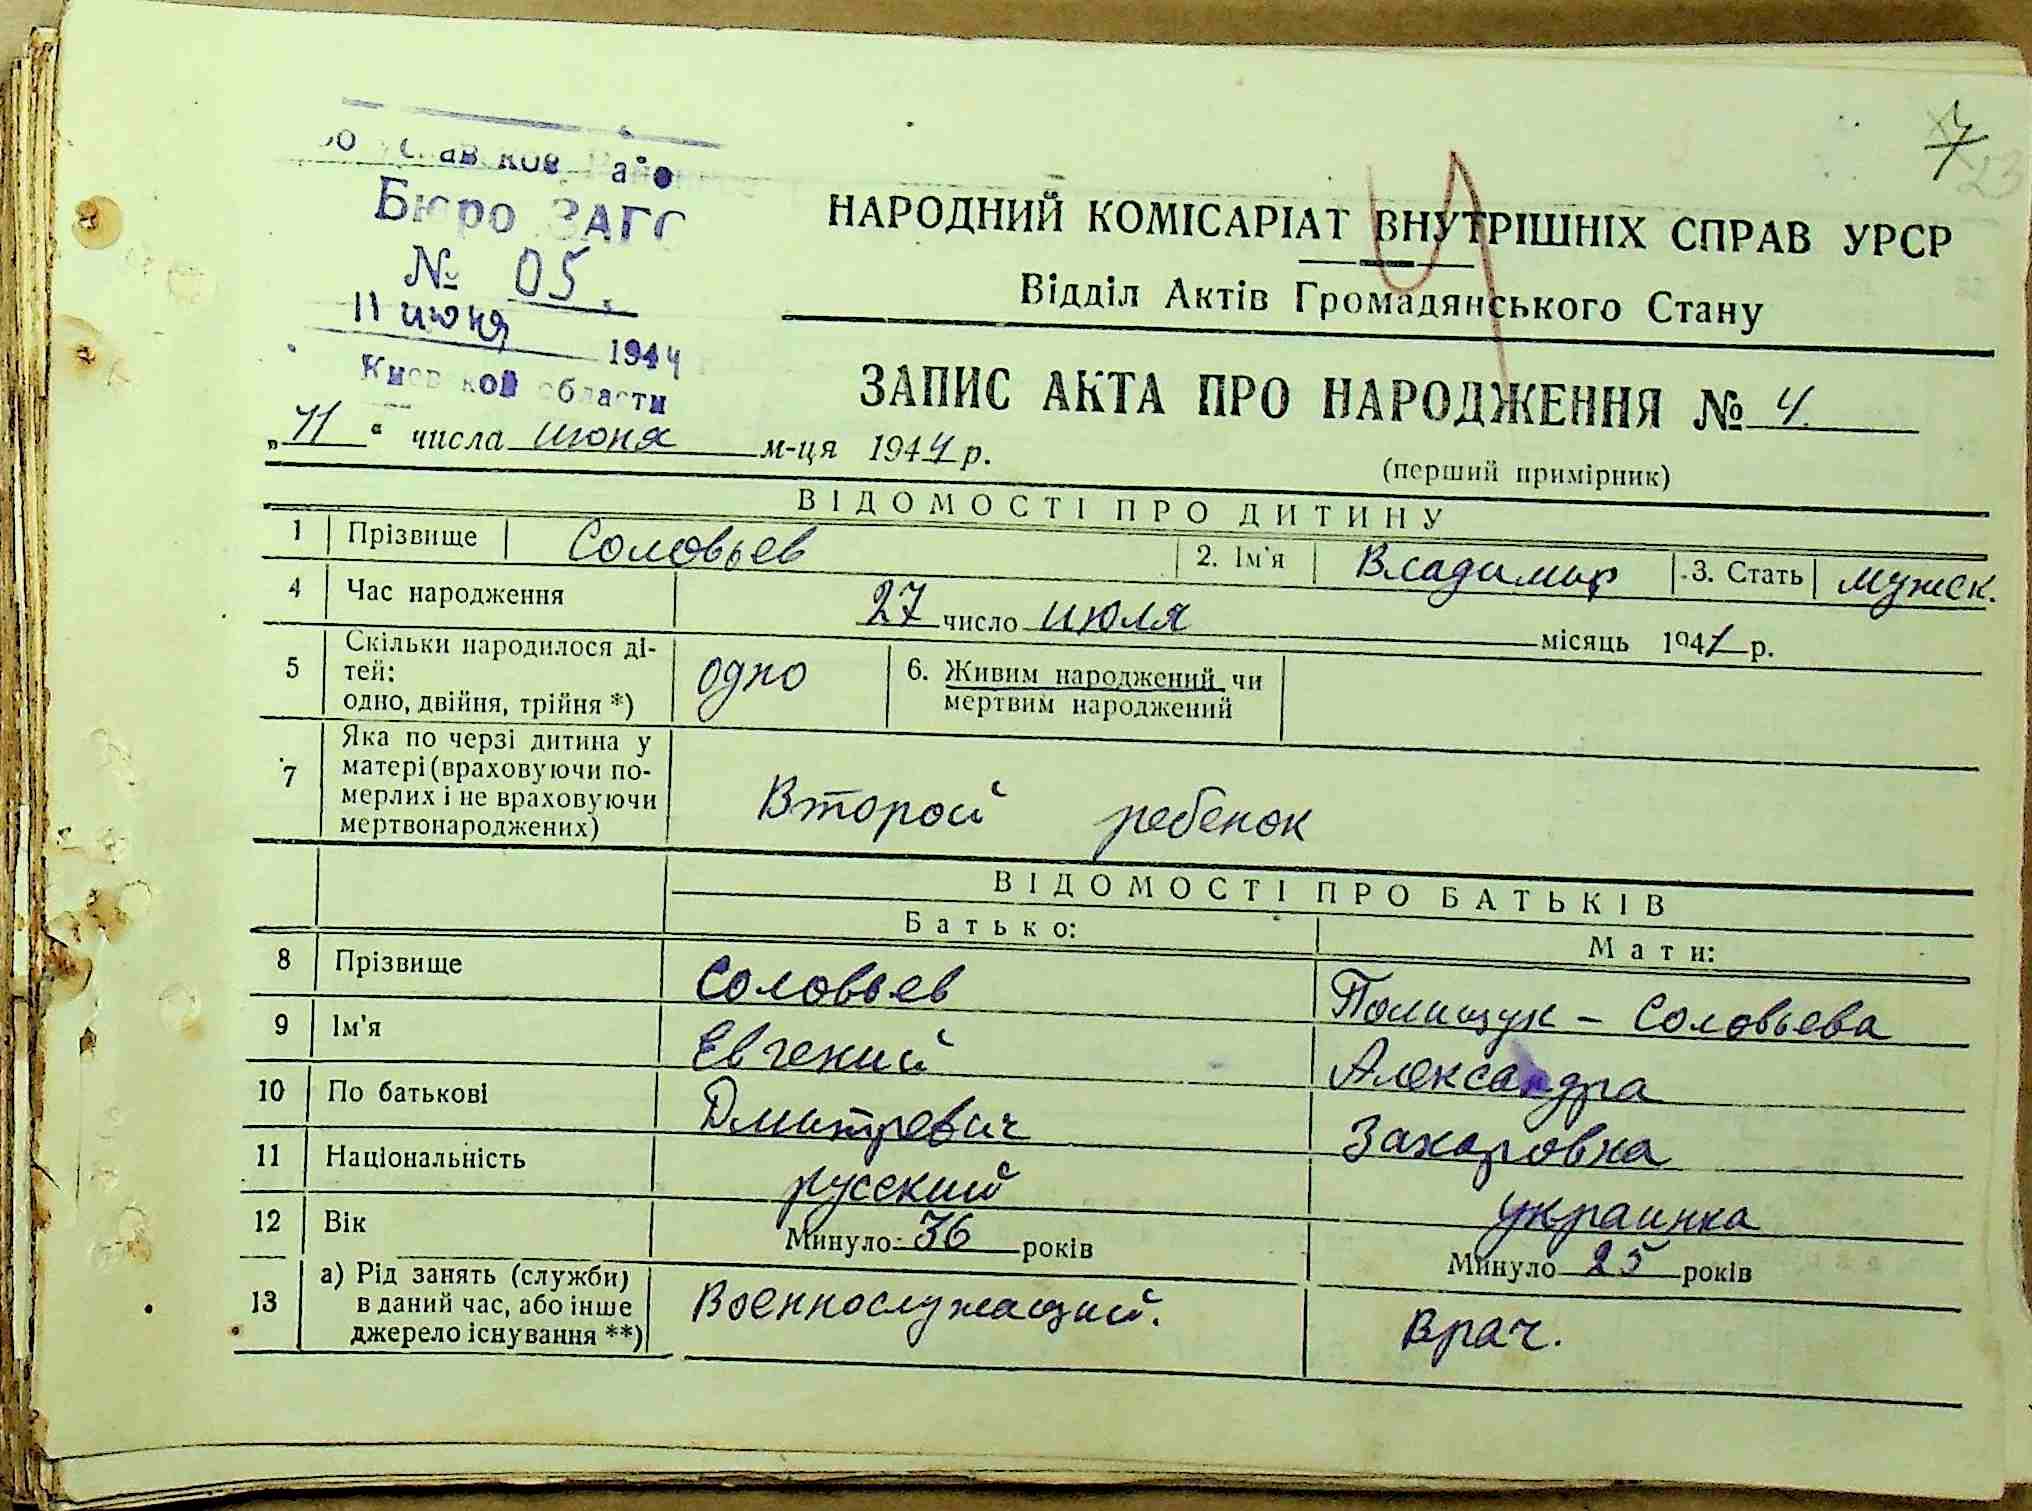 7
23
Бюро ЗАГС
№ 05.
11 июня 1944
Киевской области
НАРОДНИЙ КОМІСАРІАТ ВНУТРІШНІХ СПРАВ УРСР
Відділ Актів Громадянського Стану
ЗАПИС АКТА ПРО НАРОДЖЕННЯ № 4.
(перший примірник)
„11“ числа июня м-ця 1944 р.
ВІДОМОСТІ ПРО ДИТИНУ
1 Прізвище Соловьев 2. Ім'я Владимир 3. Стать мужск.
4 Час народження 27 число июля місяць 1941 р.
5 Скільки народилося ді-
тей:
одно, двійня, трійня *) одно
6. Живим народжений чи
мертвим народжений
7 Яка по черзі дитина у
матері (враховуючи по-
мерлих і не враховуючи
мертвонароджених) Второй ребенок
ВІДОМОСТІ ПРО БАТЬКІВ
Батько: Мати:
8 Прізвище Соловьев Полищук – Соловьева
9 Ім'я Евгений Александра
10 По батькові Дмитревич Захаровна
11 Національність русский украинка
12 Вік Минуло 36 років Минуло 25 років
13 а) Рід занять (служби)
в даний час, або інше
джерело існування **) Военнослужащий. Врач.